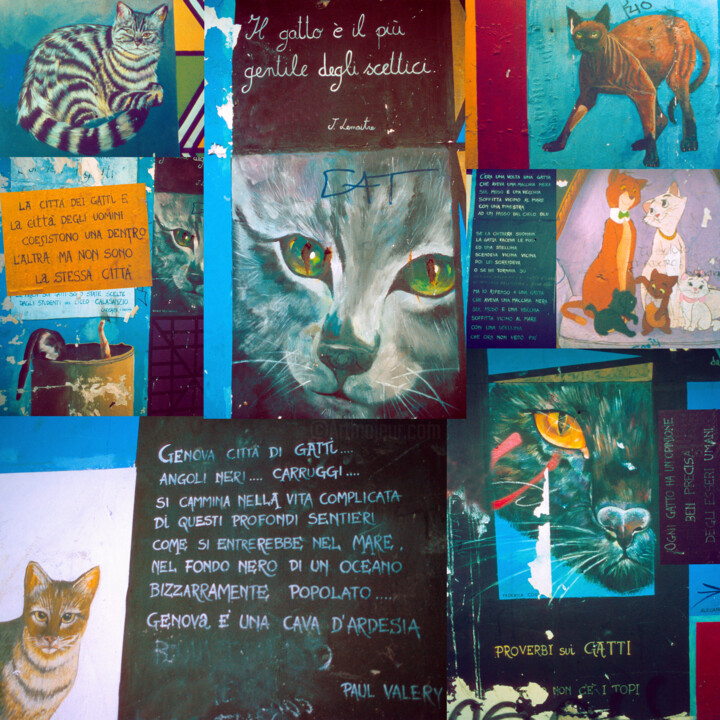 Il gatto è il più
gentile degli scettici.
J. Lemaitre
GAT
LA CITTÀ DEI GATTI E
LA CITTÀ DEGLI UOMINI
COESISTONO UNA DENTRO
L'ALTRA: MA NON SONO
LA STESSA CITTÀ
C'ERA UNA VOLTA UNA GATTA
CHE AVEVA UNA MACCHIA NERA
SUL MUSO E UNA VECCHIA
SOFFITTA VICINO AL MARE
CON UNA FINESTRA
AD UN PASSO DAL CIELO BLU
SE LA CHITARRA SUONAVO
LA GATTA FACEVA LE FUSA
ED UNA STELLINA
SCENDEVA VICINA VICINA
POI MI SORRIDEVA
E SE NE TORNAVA SU
CHE AVEVA UNA MACCHIA NERA
SUL MUSO E UNA VECCHIA
SOFFITTA VICINO AL MARE
CON UNA STELLINA
CHE ORA NON VEDO PIÙ
artmajeur.com
GENOVA CITTÀ DI GATTI....
ANGOLI NERI.... CARRUGGI....
SI CAMMINA NELLA VITA COMPLICATA
DI QUESTI PROFONDI SENTIERI
COME SI ENTREREBBE NEL MARE,
NEL FONDO NERO DI UN OCEANO
BIZZARRAMENTE POPOLATO....
GENOVA E' UNA CAVA D'ARDESIA
PAUL VALERY
¡OGNI GATTO HA UN'OPINIONE
BEN PRECISA
DEGLI ESSERI UMANI
PROVERBI SUI GATTI
NON C'È I TOPI